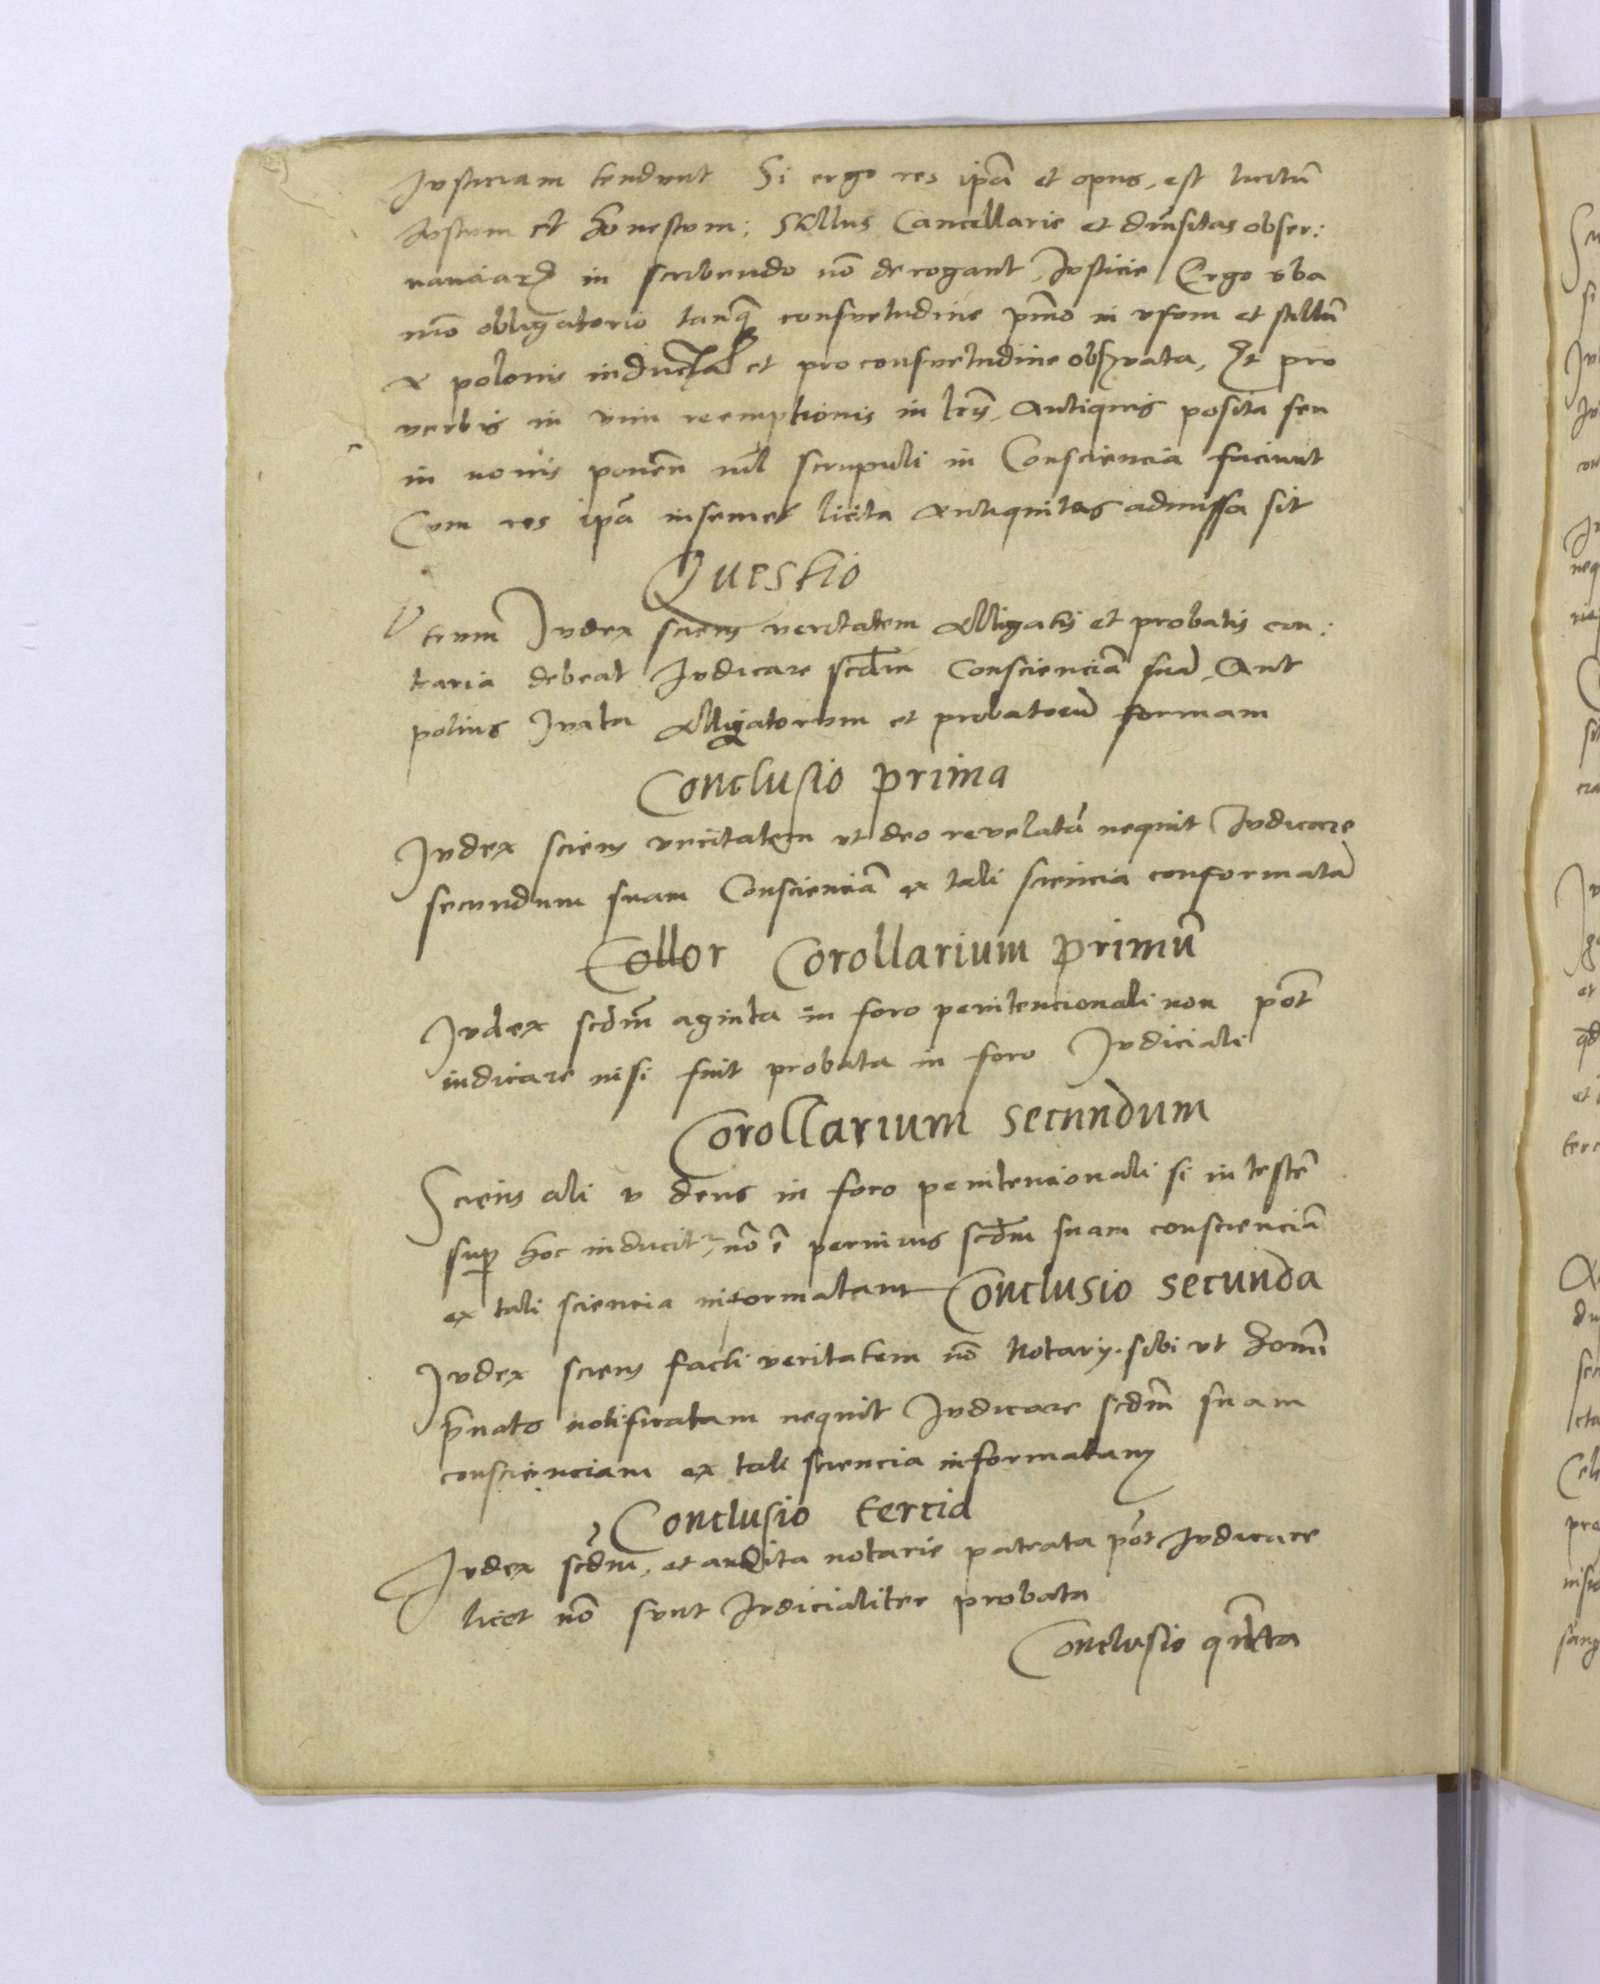 Justiciam tendunt Si ergo res ipā et opus, est licitū
Justum et honestum; Stillus Cancellarie et diūsitas obser:
in scribendo nō derogant Justicie Ergo vba
mō obligatorio tanq̄ consuetudine pmō in usum et stillū
a polonis inducta et pro consuetudine obsrvata, Et pro
verbis in vim reemptionis in lrīs Antiquis posita seu
in novis ponēn nil scrupuli in Consciencia faciunt
Cum res ipā insemet licita Antiquitas admissa sit
Questio
Utrum Judex sciens veritatem Alligatis et probatis con:
traria debeat Judicare scdm Conscienciā suā, Aut
potius Juxta Alligatorum et probatorū formam
Conclusio prima
Judex sciens veritatem ut deo revelatā nequit Judicare
secundum suam Conscienciā ex tali sciencia conformatā
Collor Corollarium primū
Judex scdm̄ agnita in foro penitencionali non pōt
iudicare nisi fuit probata in foro Judiciali
Corollarium secundum
Sciens ali ut deus in foro penitencionali si in testē
sup hoc inducitr, nō ē periurus scdm suam conscienciā
ex tali sciencia informatam Conclusio secunda
Judex sciens facti veritatem nō Notarij. sibi ut homī
p̄vato notificatam nequit Judicare scdm̄ suam
conscienciam ex tali sciencia informatam
Conclusio tercia
Judex scdm, et audita notarie patrata pōt Judicare
licet nō sunt Judicialiter probata
Conclusio